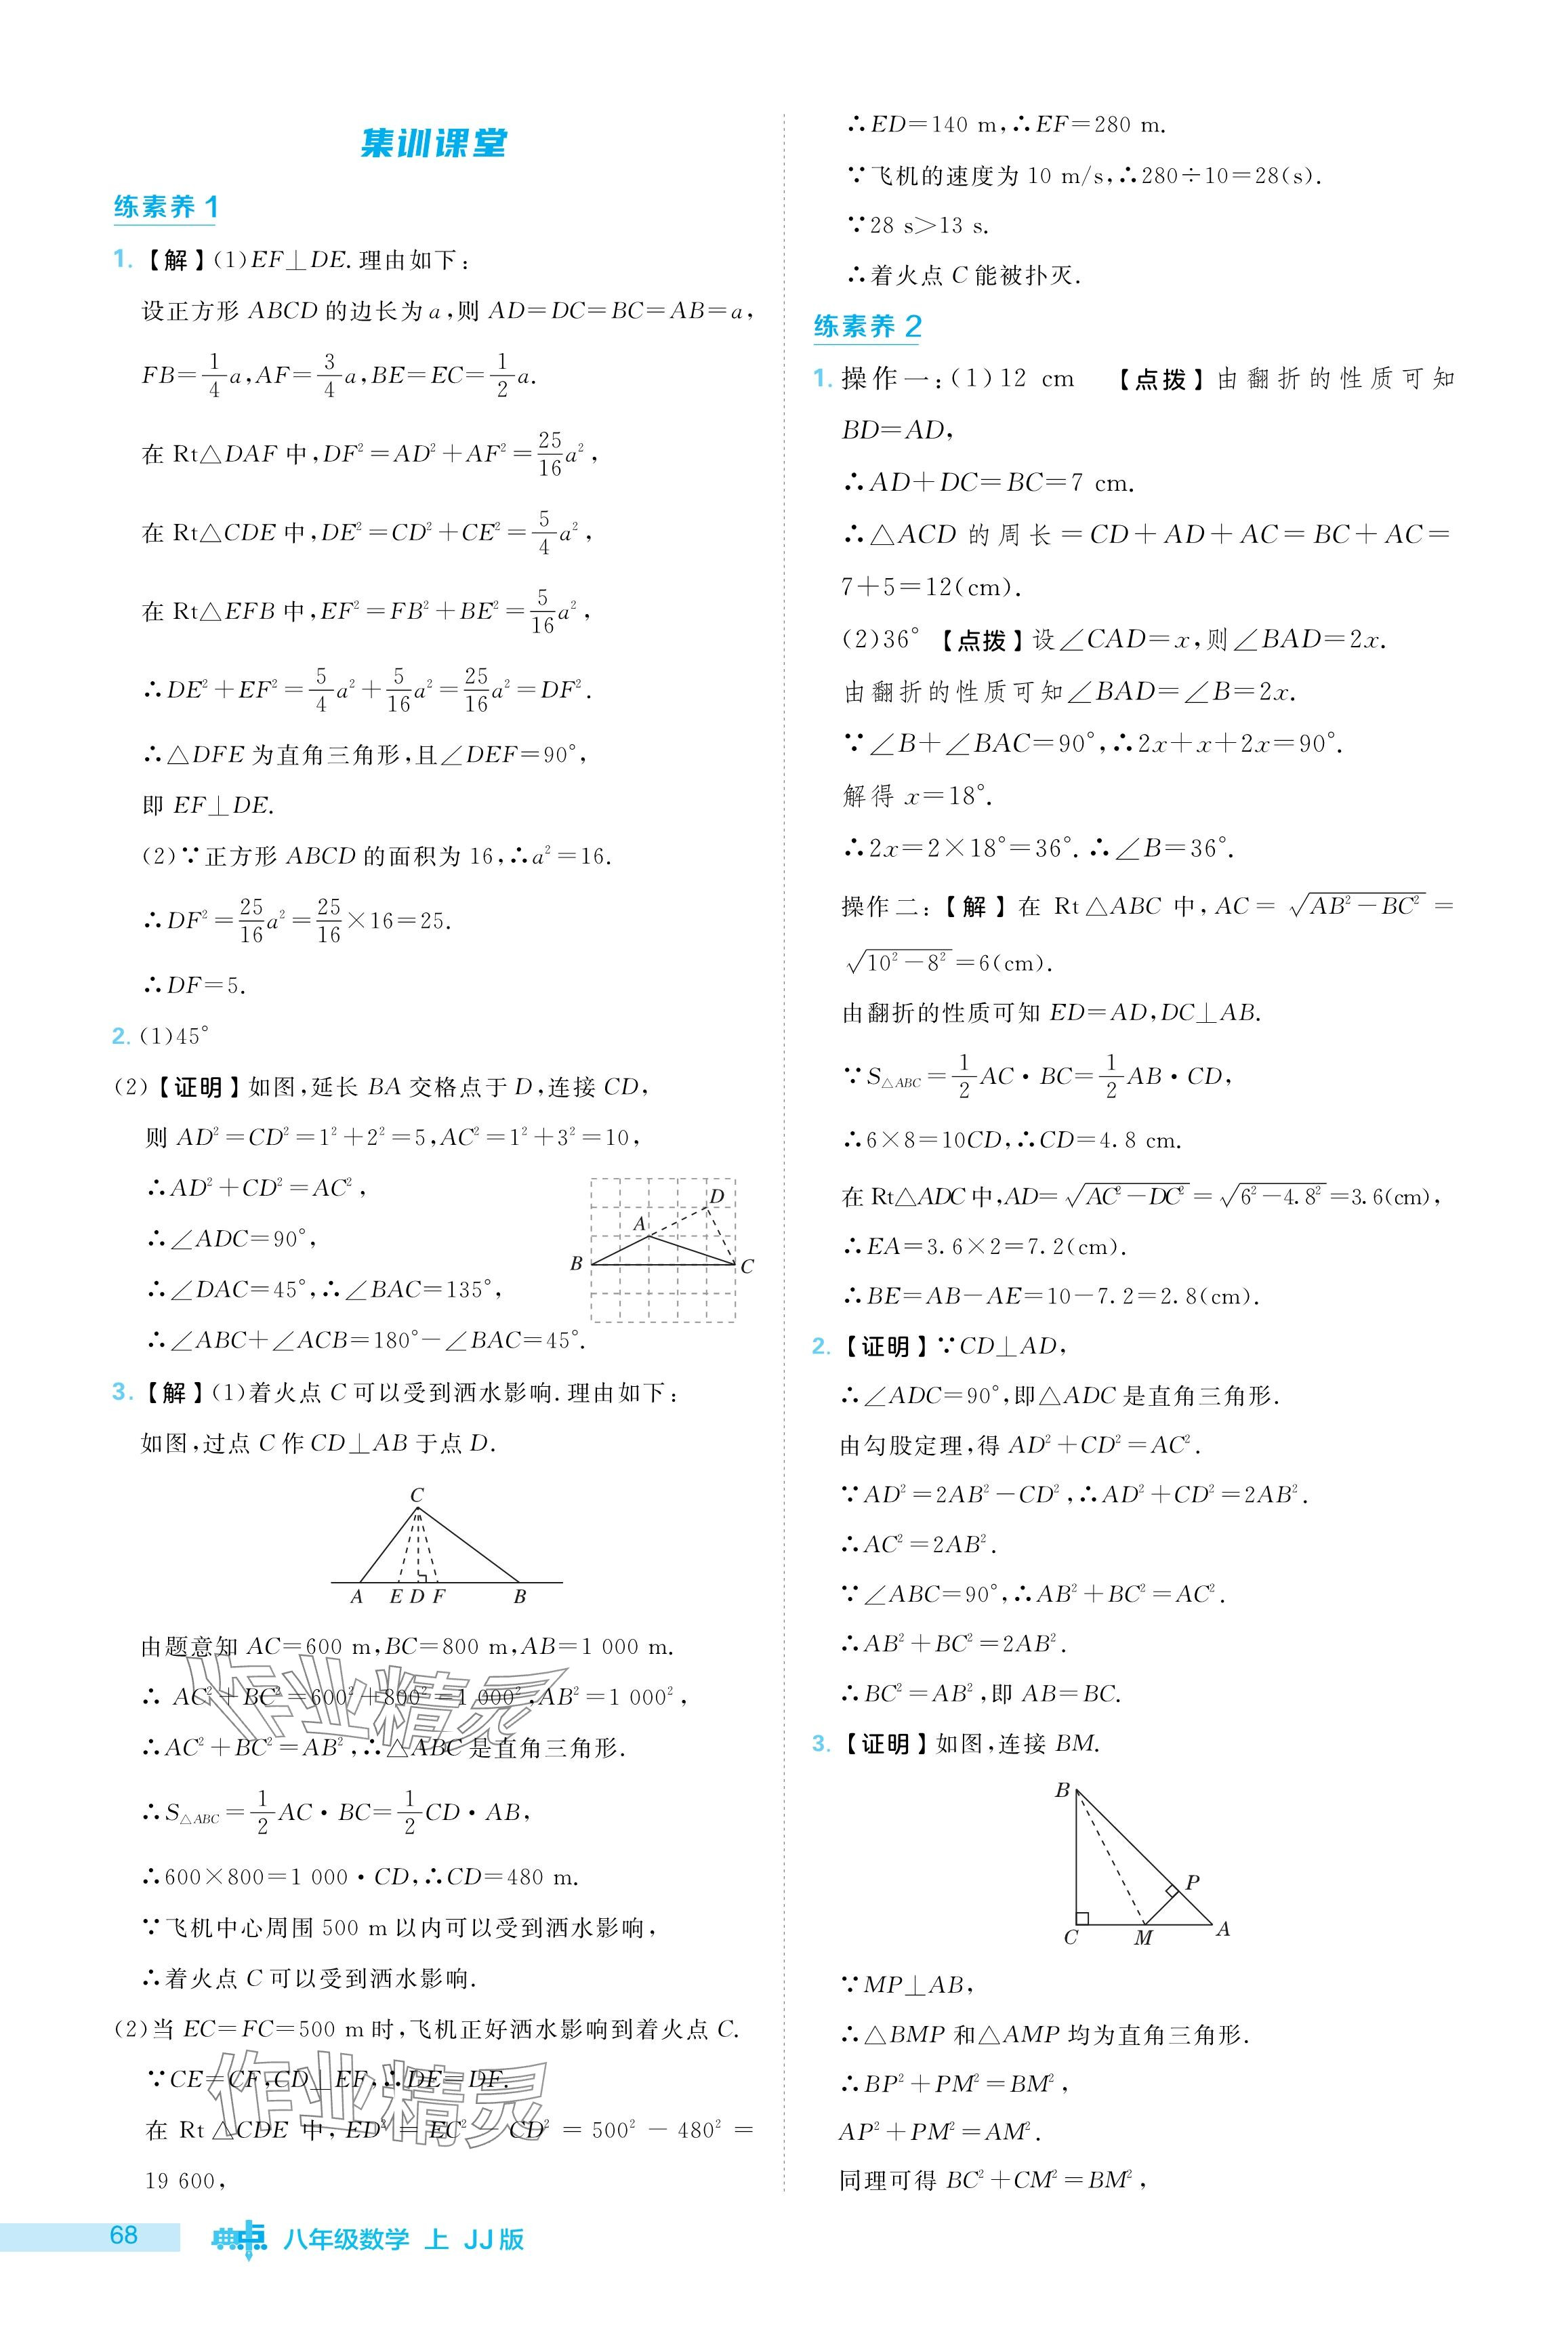 集训课堂
练素养 1
1. 【解】(1)EF⊥DE. 理由如下：
设正方形 ABCD 的边长为 a,则 AD=DC=BC=AB=a,
FB=1/4a,AF=3/4a,BE=EC=1/2a.
在 Rt△DAF 中,DF²=AD²+AF²=25/16a²,
在 Rt△CDE 中,DE²=CD²+CE²=5/4a²,
在 Rt△EFB 中,EF²=FB²+BE²=5/16a²,
∴DE²+EF²=5/4a²+5/16a²=25/16a²=DF².
∴△DFE 为直角三角形,且∠DEF=90°,
即 EF⊥DE.
(2)∵正方形 ABCD 的面积为 16,∴a²=16.
∴DF²=25/16a²=25/16×16=25.
∴DF=5.
2. (1)45°
(2)【证明】如图,延长 BA 交格点于 D,连接 CD,
则 AD²=CD²=1²+2²=5,AC²=1²+3²=10,
∴AD²+CD²=AC²,
∴∠ADC=90°,
∴∠DAC=45°,∴∠BAC=135°,
∴∠ABC+∠ACB=180°-∠BAC=45°.
A
B
C
D
3. 【解】(1)着火点 C 可以受到洒水影响. 理由如下：
如图,过点 C 作 CD⊥AB 于点 D.
C
A E D F B
由题意知 AC=600 m,BC=800 m,AB=1 000 m.
∴ AC²+BC²=600²+800²=1 000²,AB²=1 000²,
∴AC²+BC²=AB²,∴△ABC 是直角三角形.
∴S△ABC=1/2AC·BC=1/2CD·AB,
∴600×800=1 000·CD,∴CD=480 m.
∵飞机中心周围 500 m 以内可以受到洒水影响,
∴着火点 C 可以受到洒水影响.
(2)当 EC=FC=500 m 时,飞机正好洒水影响到着火点 C.
∵CE=CF,CD⊥EF,∴DE=DF.
在 Rt△CDE 中,ED²=EC²-CD²=500²-480²=
19 600,
作业精灵
作业精灵
∴ED=140 m,∴EF=280 m.
∵飞机的速度为 10 m/s,∴280÷10=28(s).
∵28 s>13 s.
∴着火点 C 能被扑灭.
练素养 2
1. 操作一：(1)12 cm 【点拨】由翻折的性质可知
BD=AD,
∴AD+DC=BC=7 cm.
∴△ACD 的周长=CD+AD+AC=BC+AC=
7+5=12(cm).
(2)36° 【点拨】设∠CAD=x,则∠BAD=2x.
由翻折的性质可知∠BAD=∠B=2x.
∵∠B+∠BAC=90°,∴2x+x+2x=90°.
解得 x=18°.
∴2x=2×18°=36°. ∴∠B=36°.
操作二：【解】在 Rt△ABC 中, AC=√(AB²-BC²)=
√(10²-8²)=6(cm).
由翻折的性质可知 ED=AD,DC⊥AB.
∵S△ABC=1/2AC·BC=1/2AB·CD,
∴6×8=10CD,∴CD=4.8 cm.
在 Rt△ADC 中,AD=√(AC²-DC²)=√(6²-4.8²)=3.6(cm),
∴EA=3.6×2=7.2(cm).
∴BE=AB-AE=10-7.2=2.8(cm).
2. 【证明】∵CD⊥AD,
∴∠ADC=90°,即△ADC 是直角三角形.
由勾股定理,得 AD²+CD²=AC².
∵AD²=2AB²-CD²,∴AD²+CD²=2AB².
∴AC²=2AB².
∵∠ABC=90°,∴AB²+BC²=AC².
∴AB²+BC²=2AB².
∴BC²=AB²,即 AB=BC.
3. 【证明】如图,连接 BM.
B
P
C M A
∵MP⊥AB,
∴△BMP 和△AMP 均为直角三角形.
∴BP²+PM²=BM²,
AP²+PM²=AM².
同理可得 BC²+CM²=BM²,
68 典点 八年级数学 上 JJ版